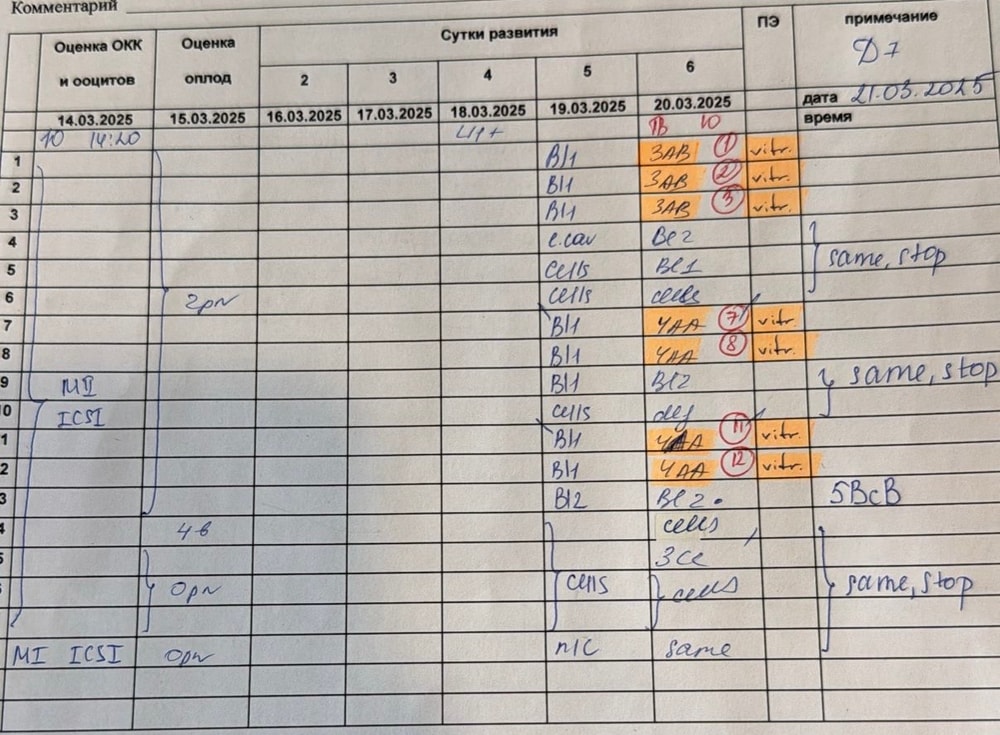 Комментарий
Оценка ОКК и ооцитов
Оценка оплод
Сутки развития
ПЭ
примечание
Д7
2 3 4 5 6
14.03.2025 15.03.2025 16.03.2025 17.03.2025 18.03.2025 19.03.2025 20.03.2025
дата 21.03.2025
время
14:20
1 Bl1 3AB 1 vitr.
2 Bl1 3AB 2 vitr.
3 Bl1 3AB 3 vitr.
4 e.cav Bl2
5 cells Bl1 same, stop
6 2pn cells cells
7 Bl1 4AA 7 vitr.
8 Bl1 4AA 8 vitr.
9 MII Bl1 Bl2 same, stop
0 ICSI cells def
1 Bl1 4AA 11 vitr.
2 Bl1 4AA 12 vitr.
3 Bl2 Bl2 5BcB
4 cells
5 3CC
0pn cells cells same, stop
MI ICSI 0pn n/c same